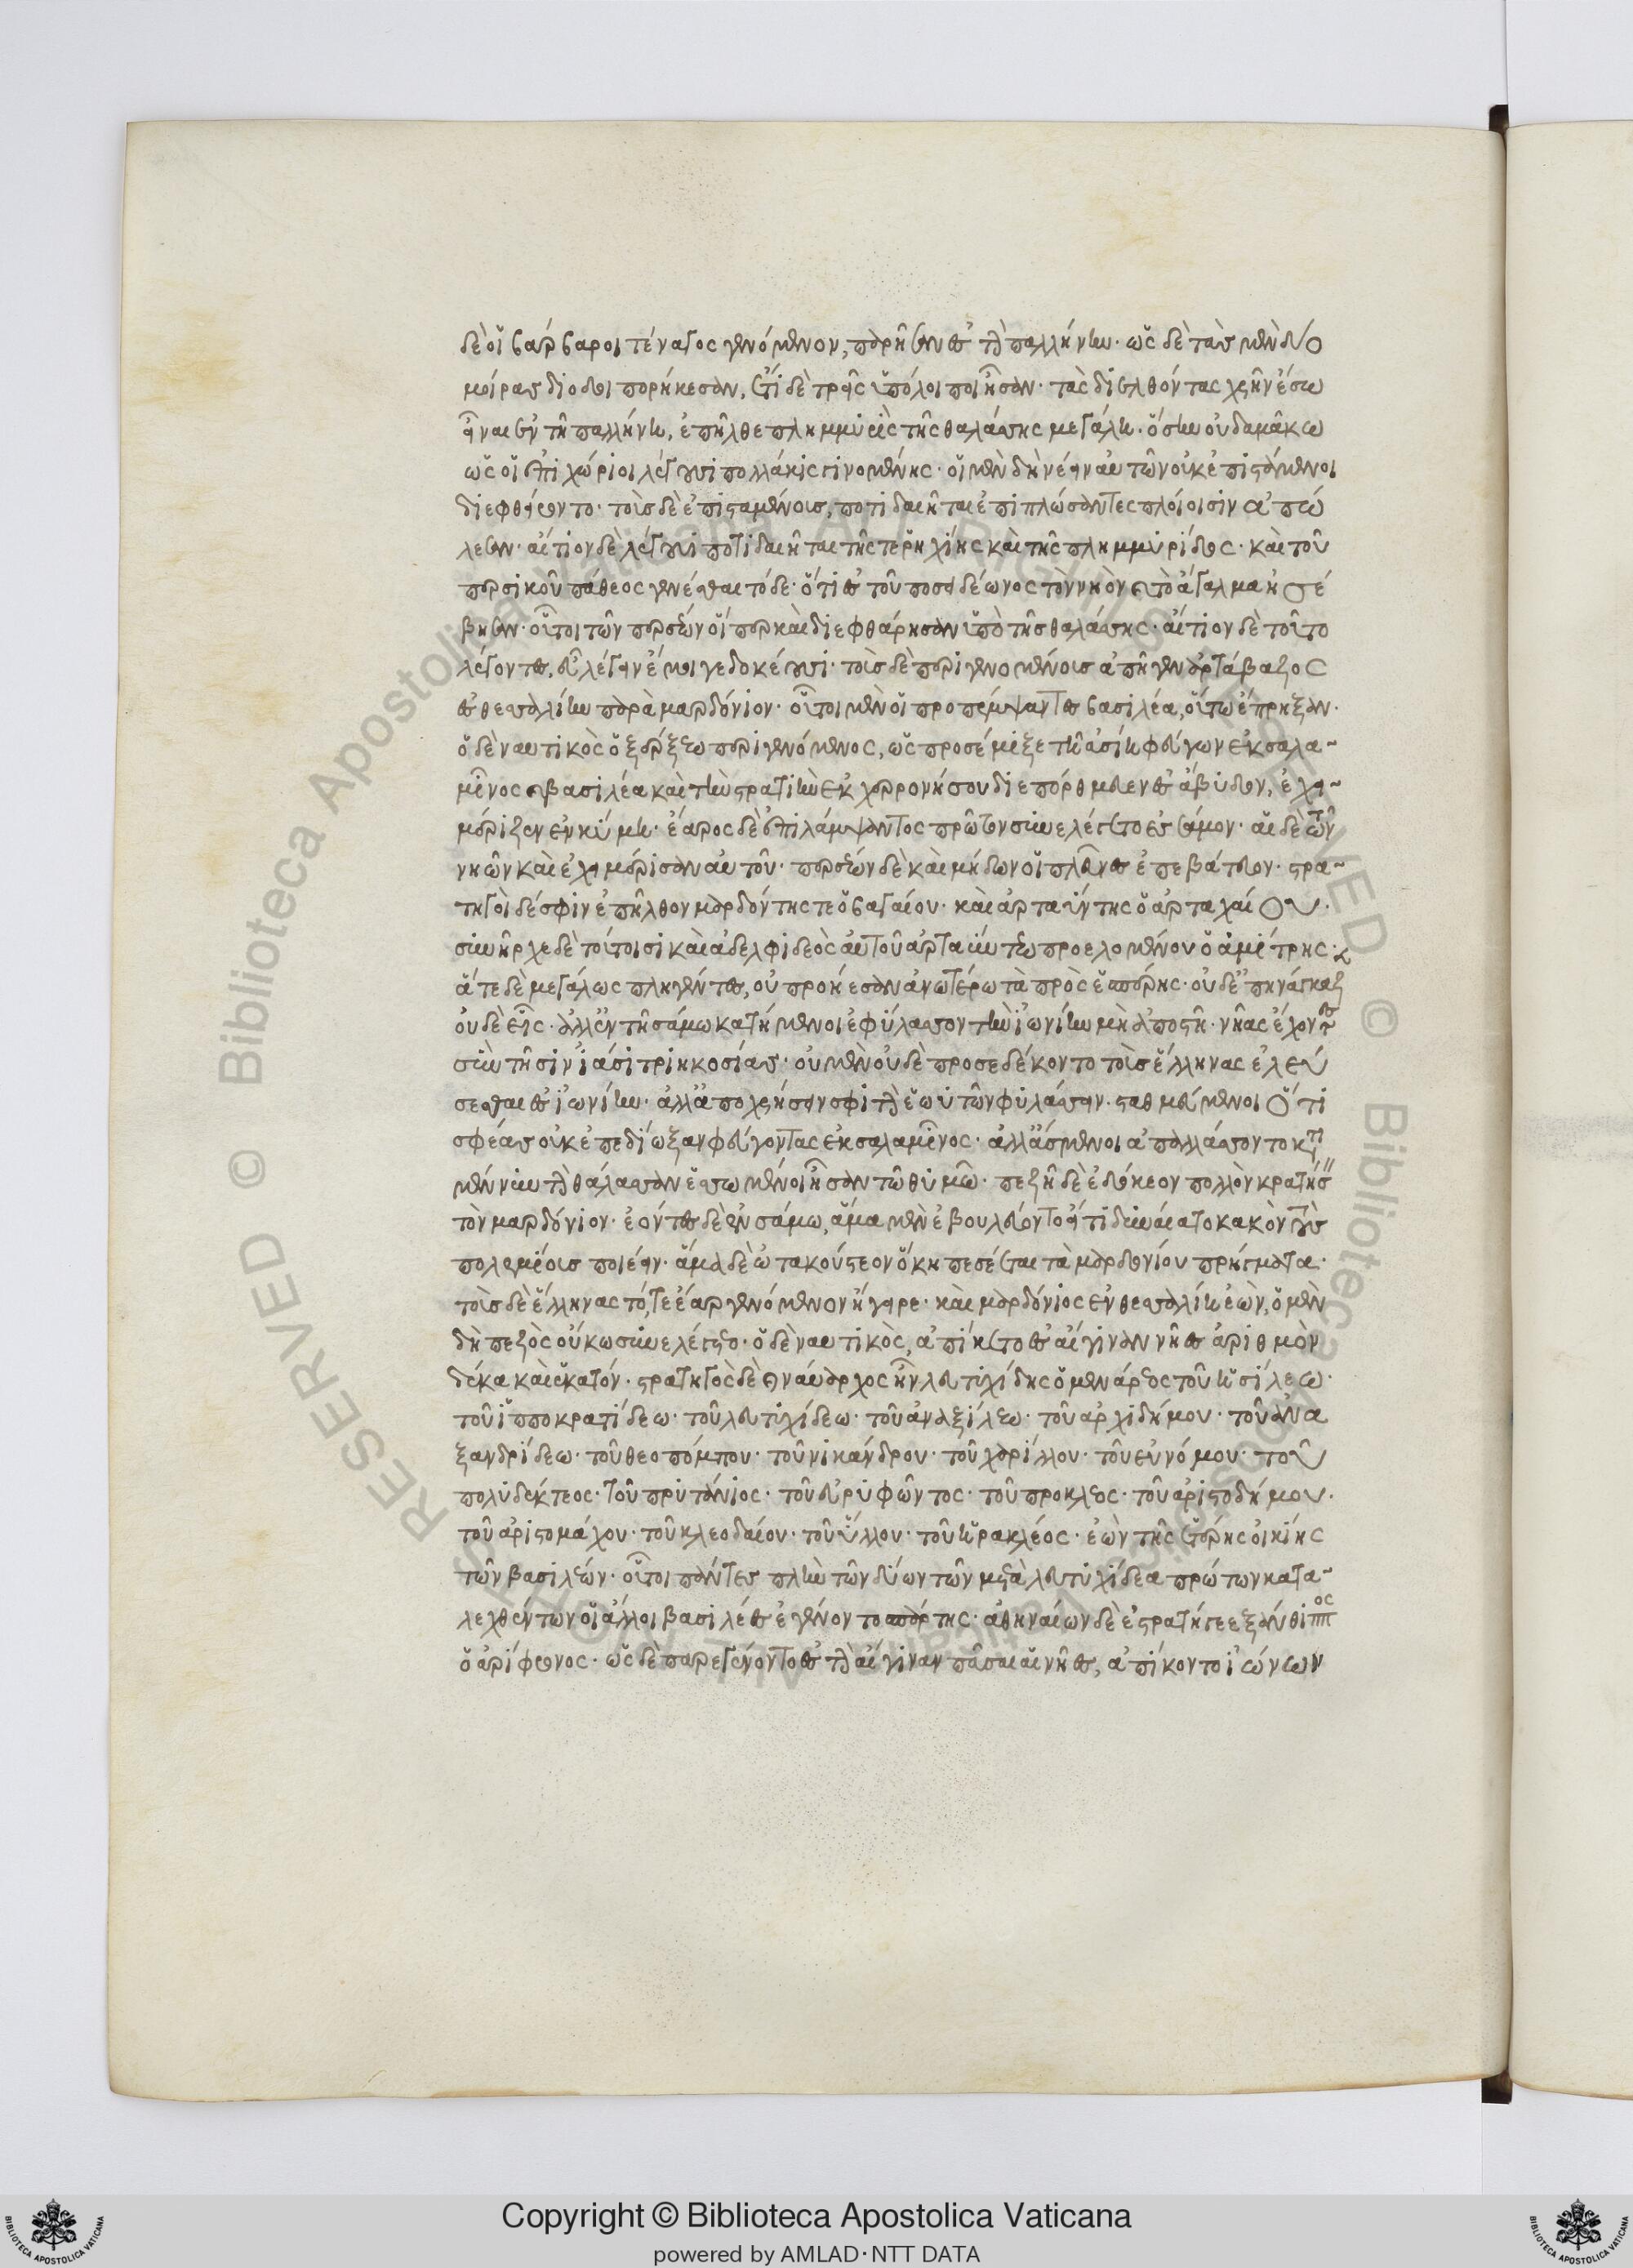 δὲ οἱ βάρβαροι τέναγος γενόμενον, παρήϊσαν ἐς τὴν παλλήνην. ὡς δὲ τὰς μὲν δύο
μοίρας διοδοι πορήκεσαν, ἔτι δὲ τρεῖς ὑπόλοιποι ἦσαν. τὰς διελθόντας χρῆν ἔσω
εἶναι ἐν τῇ παλλήνῃ, ἐπῆλθε πλημμυρὶς τῆς θαλάσσης μεγάλη. ὅση οὐδαμᾶκω
ὡς οἱ ἐπιχώριοι λέγουσι πολλάκις γινομένης. οἱ μὲν δὴ νέειν αὐτῶν οὐκ ἐπιστάμενοι
διεφθείροντο. τοὺς δὲ ἐπισταμένους, ποτιδαιῆται ἐπιπλώσαντες πλοίοισιν ἀπώ
λεσαν. αἴτιον δὲ λέγουσι ποτιδαιῆται τῆς τε ῥηχίης καὶ τῆς πλημμυρίδος. καὶ τοῦ
περσικοῦ πάθεος γενέσθαι τόδε. ὅτι ἐς τοῦ ποσειδέωνος τὸν νηὸν καὶ τὸ ἄγαλμα ἠσέ
βησαν. οὗτοι τῶν περσέων οἵπερ καὶ διεφθάρησαν ὑπὸ τῆς θαλάσσης. αἴτιον δὲ τοῦτο
λέγοντες, εὖ λέγειν ἔμοιγε δοκέουσι. τοὺς δὲ περιγενομένους ἀπῆγεν ἀρτάβαζος
ἐς θεσσαλίην παρὰ μαρδόνιον. οὗτοι μὲν οἱ προπέμψαντες βασιλέα, οὕτω ἔπρηξαν.
ὁ δὲ ναυτικὸς ὁ ξέρξεω περιγενόμενος, ὡς προσέμιξε τῇ ἀσίῃ φεύγων ἐκ σαλα-
μῖνος καὶ βασιλέα καὶ τὴν στρατιὴν ἐκ χερρονήσου διεπόρθμευσε ἐς ἄβυδον, ἐχει-
μέριζεν ἐν κύμῃ. ἔαρος δὲ ἐπιλάμψαντος πρῶτον συνελέγετο ἐς σάμον. αἱ δὲ τῶν
νηῶν καὶ ἐχειμέρισαν αὐτοῦ. περσέων δὲ καὶ μήδων οἱ πλεῦνες ἐπεβάτευον. στρα-
τηγοὶ δέ σφιν ἐπῆλθον μαρδόντης τε ὁ βαγαίου. καὶ ἀρταΰντης ὁ ἀρταχαίου.
συνῆρχε δὲ τούτοισι καὶ ἀδελφιδεὸς αὐτοῦ ἀρταΰντεω προελομένου ὁ ἀμίτρης.
ἅτε δὲ μεγάλως πληγέντες, οὐ προήεσαν ἀνωτέρω τὰ πρὸς ἑσπέρης. οὐδ' ἐπηνάγκαζε
οὐδὲ εἷς. ἀλλ' ἐν τῇ σάμω κατήμενοι ἐφύλασσον τὴν ἰωνίην μὴ ἀποστῇ. νῆας ἔχοντες
σὺν τῇσιν ἰάσι τριηκοσίας. οὐ μὲν οὐδὲ προσεδέκοντο τοὺς ἕλληνας ἐλεύ
σεσθαι ἐς ἰωνίην. ἀλλ' ἀποχρήσειν σφι τὴν ἑωυτῶν φυλάσσειν. σταθμεύμενοι ὅτι
σφέας οὐκ ἐπεδίωξαν φεύγοντας ἐκ σαλαμῖνος. ἀλλ' ἄσμενοι ἀπαλλάσσοντο κατὰ
μέν νυν τὴν θάλασσαν ἑσσωμένοι ἦσαν τῶ θυμῶ. πεζῇ δὲ ἐδόκεον πολλὸν κρατήσειν
τὸν μαρδόνιον. ἐόντες δὲ ἐν σάμω, ἅμα μὲν ἐβουλεύοντο εἴ τι δυναίατο κακὸν τοὺς
πολεμίους ποιέειν. ἅμα δὲ ὠτακούστεον ὅκη πεσέεται τὰ μαρδονίου πρήγματα.
τοὺς δὲ ἕλληνας τό, τε ἔαρ γενόμενον ἤγειρε. καὶ μαρδόνιος ἐν θεσσαλίῃ ἐὼν, ὁ μὲν
δὴ πεζὸς οὔκω συνελέγετο. ὁ δὲ ναυτικὸς, ἀπίκετο ἐς αἴγιναν νῆες ἀριθμὸν
δέκα καὶ ἑκατόν. στρατηγὸς δὲ καὶ ναύαρχος ἦν λευτυχίδης ὁ μενάρεος τοῦ ἡγησίλεω.
τοῦ ἱπποκρατίδεω. τοῦ λευτυχίδεω. τοῦ ἀναξίλεω. τοῦ ἀρχιδήμου. τοῦ ἀνα
ξανδρίδεω. τοῦ θεοπόμπου. τοῦ νικάνδρου. τοῦ χαρίλλου. τοῦ εὐνόμου. τοῦ
πολυδέκτεος. τοῦ πρυτάνιος. τοῦ εὐρυφῶντος. τοῦ προκλέος. τοῦ ἀριστοδήμου.
τοῦ ἀριστομάχου. τοῦ κλεοδαίου. τοῦ ὕλλου. τοῦ ἡρακλέος. ἐὼν τῆς ἑτέρης οἰκίης
τῶν βασιλέων. οὗτοι πάντες πλὴν τῶν δύων τῶν μετὰ λευτυχίδεα πρώτων κατα-
λεχθέντων οἱ ἄλλοι βασιλέες ἐγένοντο σπάρτης. ἀθηναίων δὲ ἐστρατήγεε ξάνθιππος
ὁ ἀρίφρονος. ὡς δὲ παρεγένοντο ἐς τὴν αἴγιναν πᾶσαι αἱ νῆες, ἀπίκοντο ἰώνων